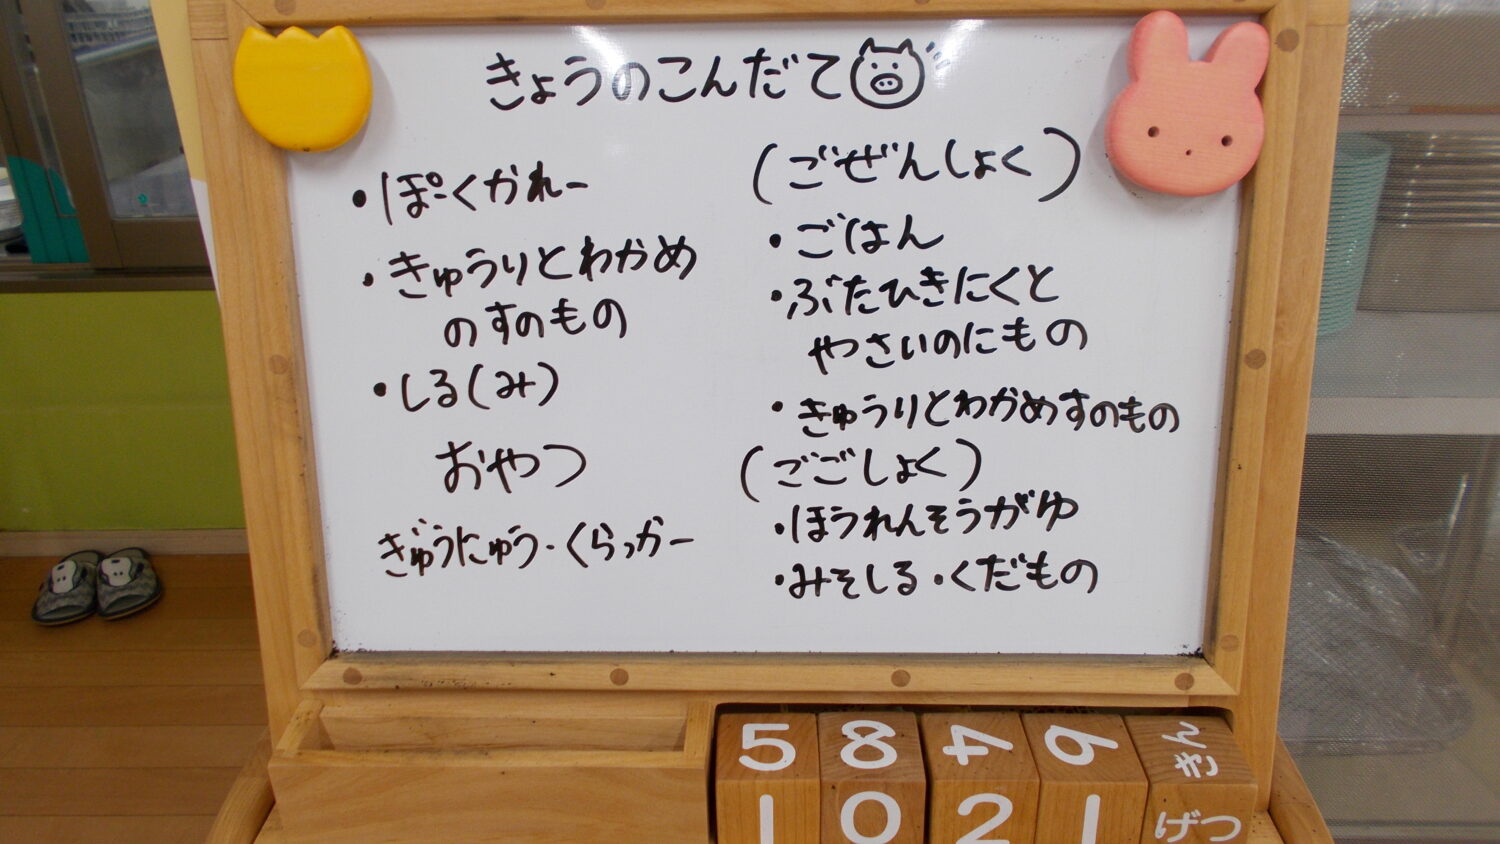 きょうのこんだて
・ぽーくかれー
・きゅうりとわかめ
のすのもの
・しる(み)
おやつ
ぎゅうにゅう・くらっかー
(ごぜんしょく)
・ごはん
・ぶたひきにくと
やさいのにもの
・きゅうりとわかめすのもの
(ごごしょく)
・ほうれんそうがゆ
・みそしる・くだもの
5 8 4 6 きん
1 0 2 1 げつ